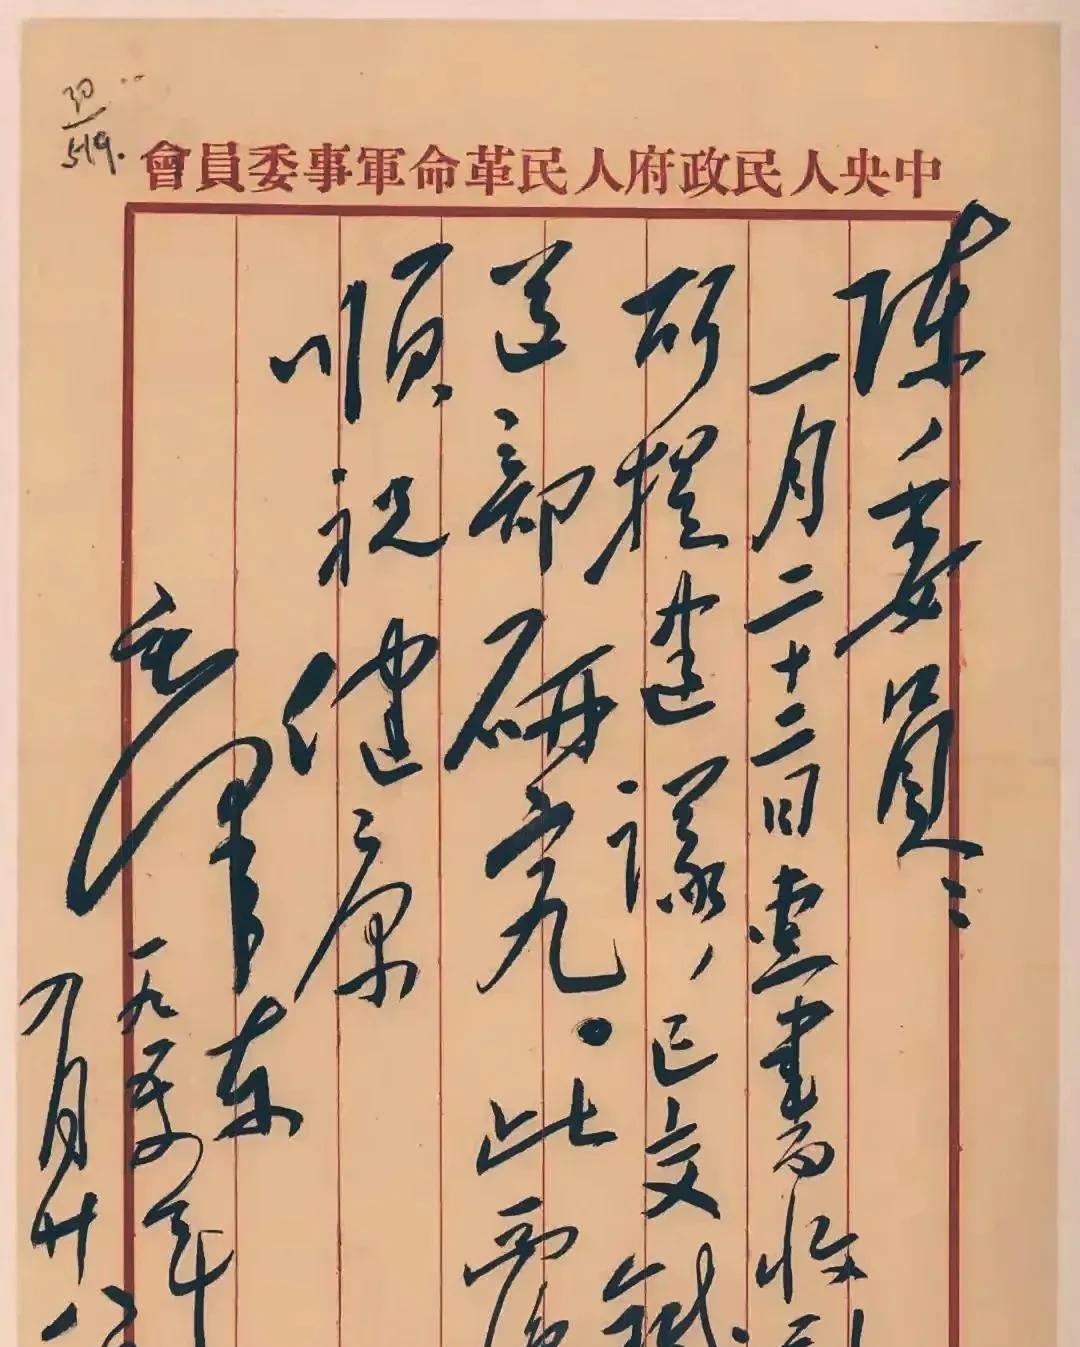 30
519.
中央人民政府人民革命軍事委員會
陳委員：
一月二十二日惠書收到
所提建議，已交鐵
道部研究。此覆
順祝健康
毛澤東
一九五年
月廿八